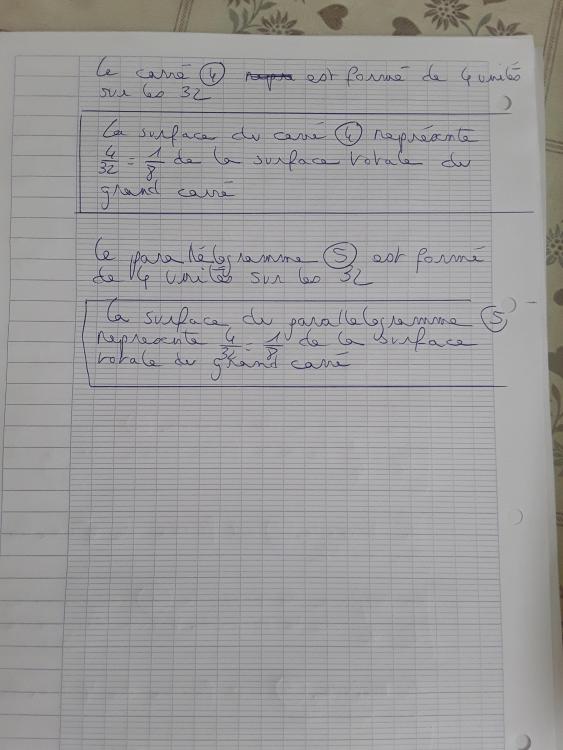 le carré ④ est formé de 4 unités
sur les 32
La surface du carré ④ représente
4/32 = 1/8 de la surface totale du
grand carré
le parallélogramme ⑤ est formé
de 4 unités sur les 32
la surface du parallelogramme ⑤
représente 4/32 = 1/8 de la surface
totale du grand carré